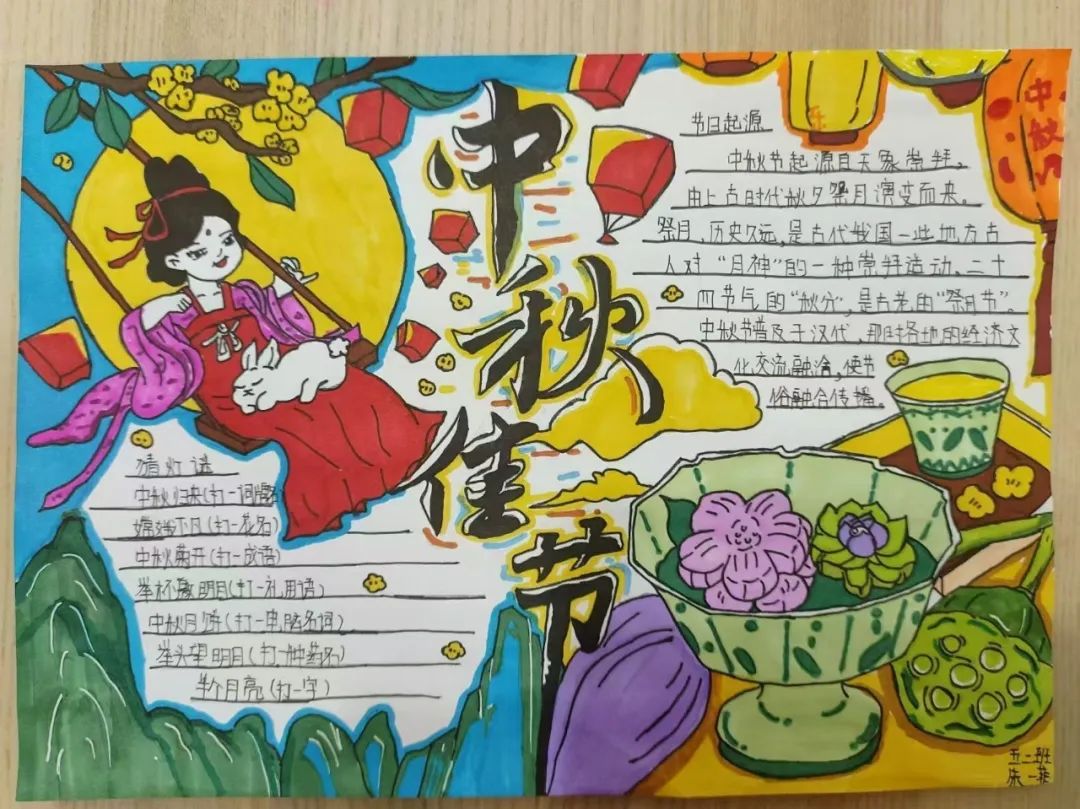 中秋佳节
中秋
节日起源
中秋节起源自天象崇拜，
由上古时代秋夕祭月演变而来。
祭月，历史久远，是古代我国一些地方古
人对“月神”的一种崇拜活动，二十
四节气的“秋分”，是古老的“祭月节”。
中秋节普及于汉代，那时各地的经济文
化交流融洽，使节
俗融合传播。
猜灯谜
中秋归来(打一词牌名)
嫦娥下凡(打一花名)
中秋菊开(打一成语)
举杯邀明月(打一礼用语)
中秋月饼(打一电脑名词)
举头望明月(打一种药名)
半个月亮(打一字)
五二班
朱一菲